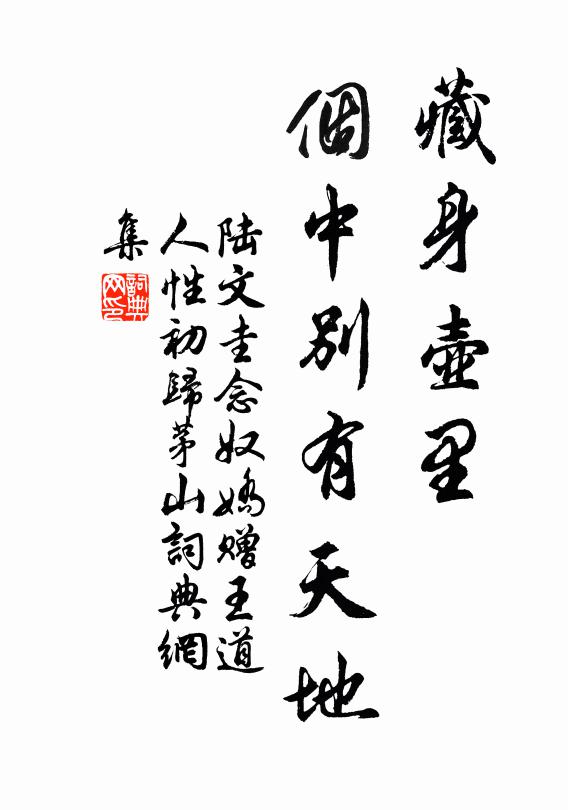 藏身壺里
個中別有天地
陆文圭念奴嬌赠王道
人性初歸茅山詞典網
集
詞典
网印